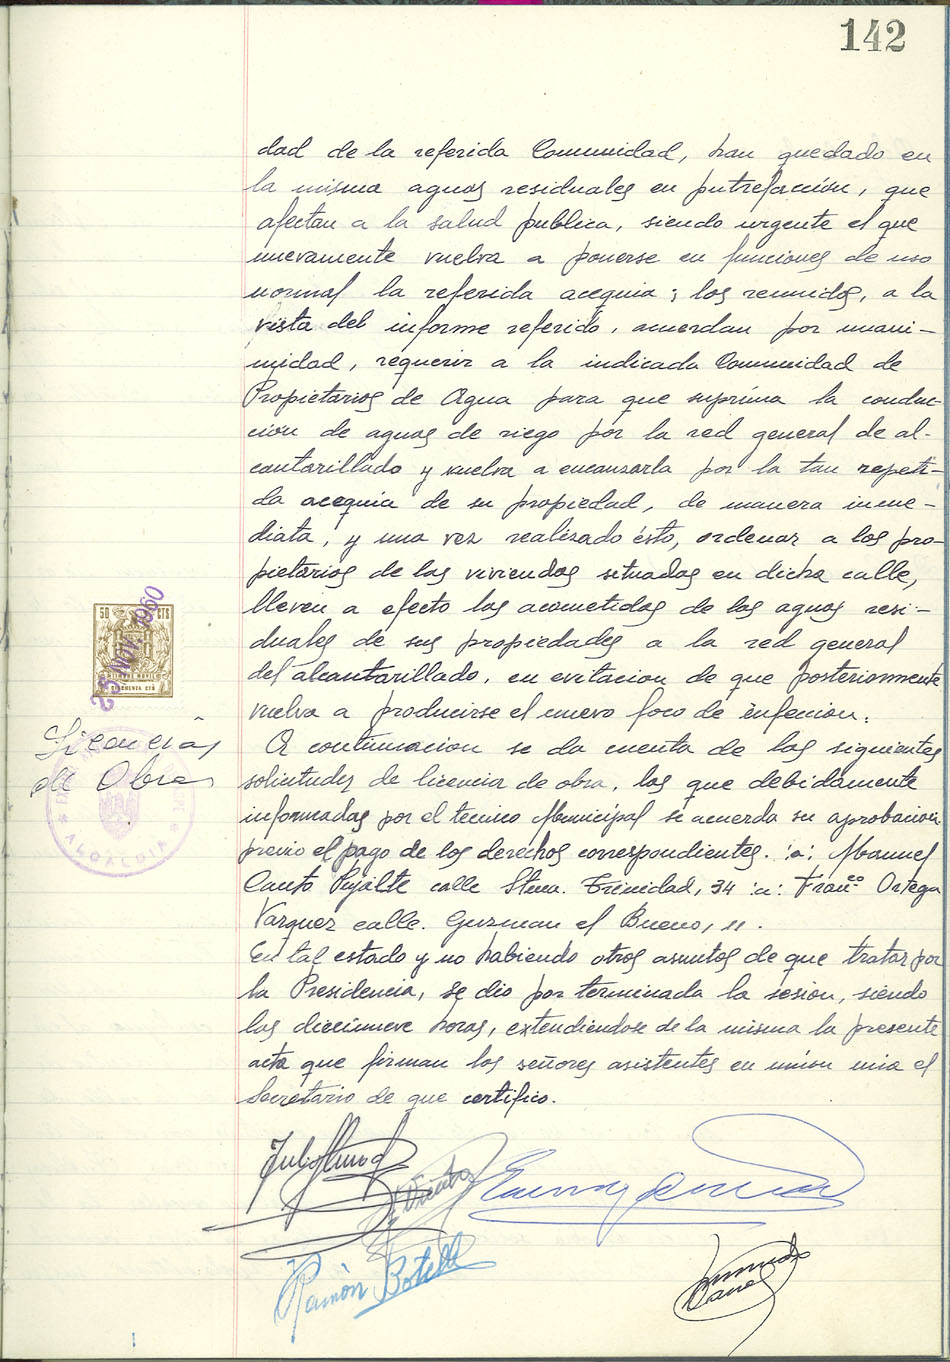 142
dad de la referida Comunidad, han quedado en
la misma aguas residuales en putrefacción, que
afectan a la salud publica, siendo urgente el que
nuevamente vuelva a ponerse en funciones de uso
normal la referida acequia; los reunidos, a la
vista del informe referido, acuerdan por unani-
midad, requerir a la indicada Comunidad de
Propietarios de Agua para que suprima la conduc-
cion de aguas de riego por la red general de al-
cantarillado y vuelva a encauzarla por la tan repeti-
da acequia de su propiedad, de manera inme-
diata, y una vez realizado ésto, ordenar a los pro-
pietarios de las viviendas situadas en dicha calle,
lleven a efecto las acometidas de las aguas resi-
duales de sus propiedades a la red general
del alcantarillado, en evitacion de que posteriormente
vuelva a producirse el nuevo foco de infeccion.
50 CTS
25 NOV. 1960
Licencias
de Obras
ALCALDIA
A continuacion se da cuenta de las siguientes
solicitudes de licencia de obra, las que debidamente
informadas por el tecnico Municipal se acuerda su aprobacion
previo el pago de los derechos correspondientes. :a: Manuel
Canto Pujalte calle Stma. Trinidad, 34 :a: Franco Ortega
Vazquez calle. Guzman el Bueno, 11.
En tal estado y no habiendo otros asuntos de que tratar por
la Presidencia, se dio por terminada la sesion, siendo
las diecinueve horas, extendiéndose de la misma la presente
acta que firman los señores asistentes en unión mia el
Secretario de que certifico.
Ramón Botella